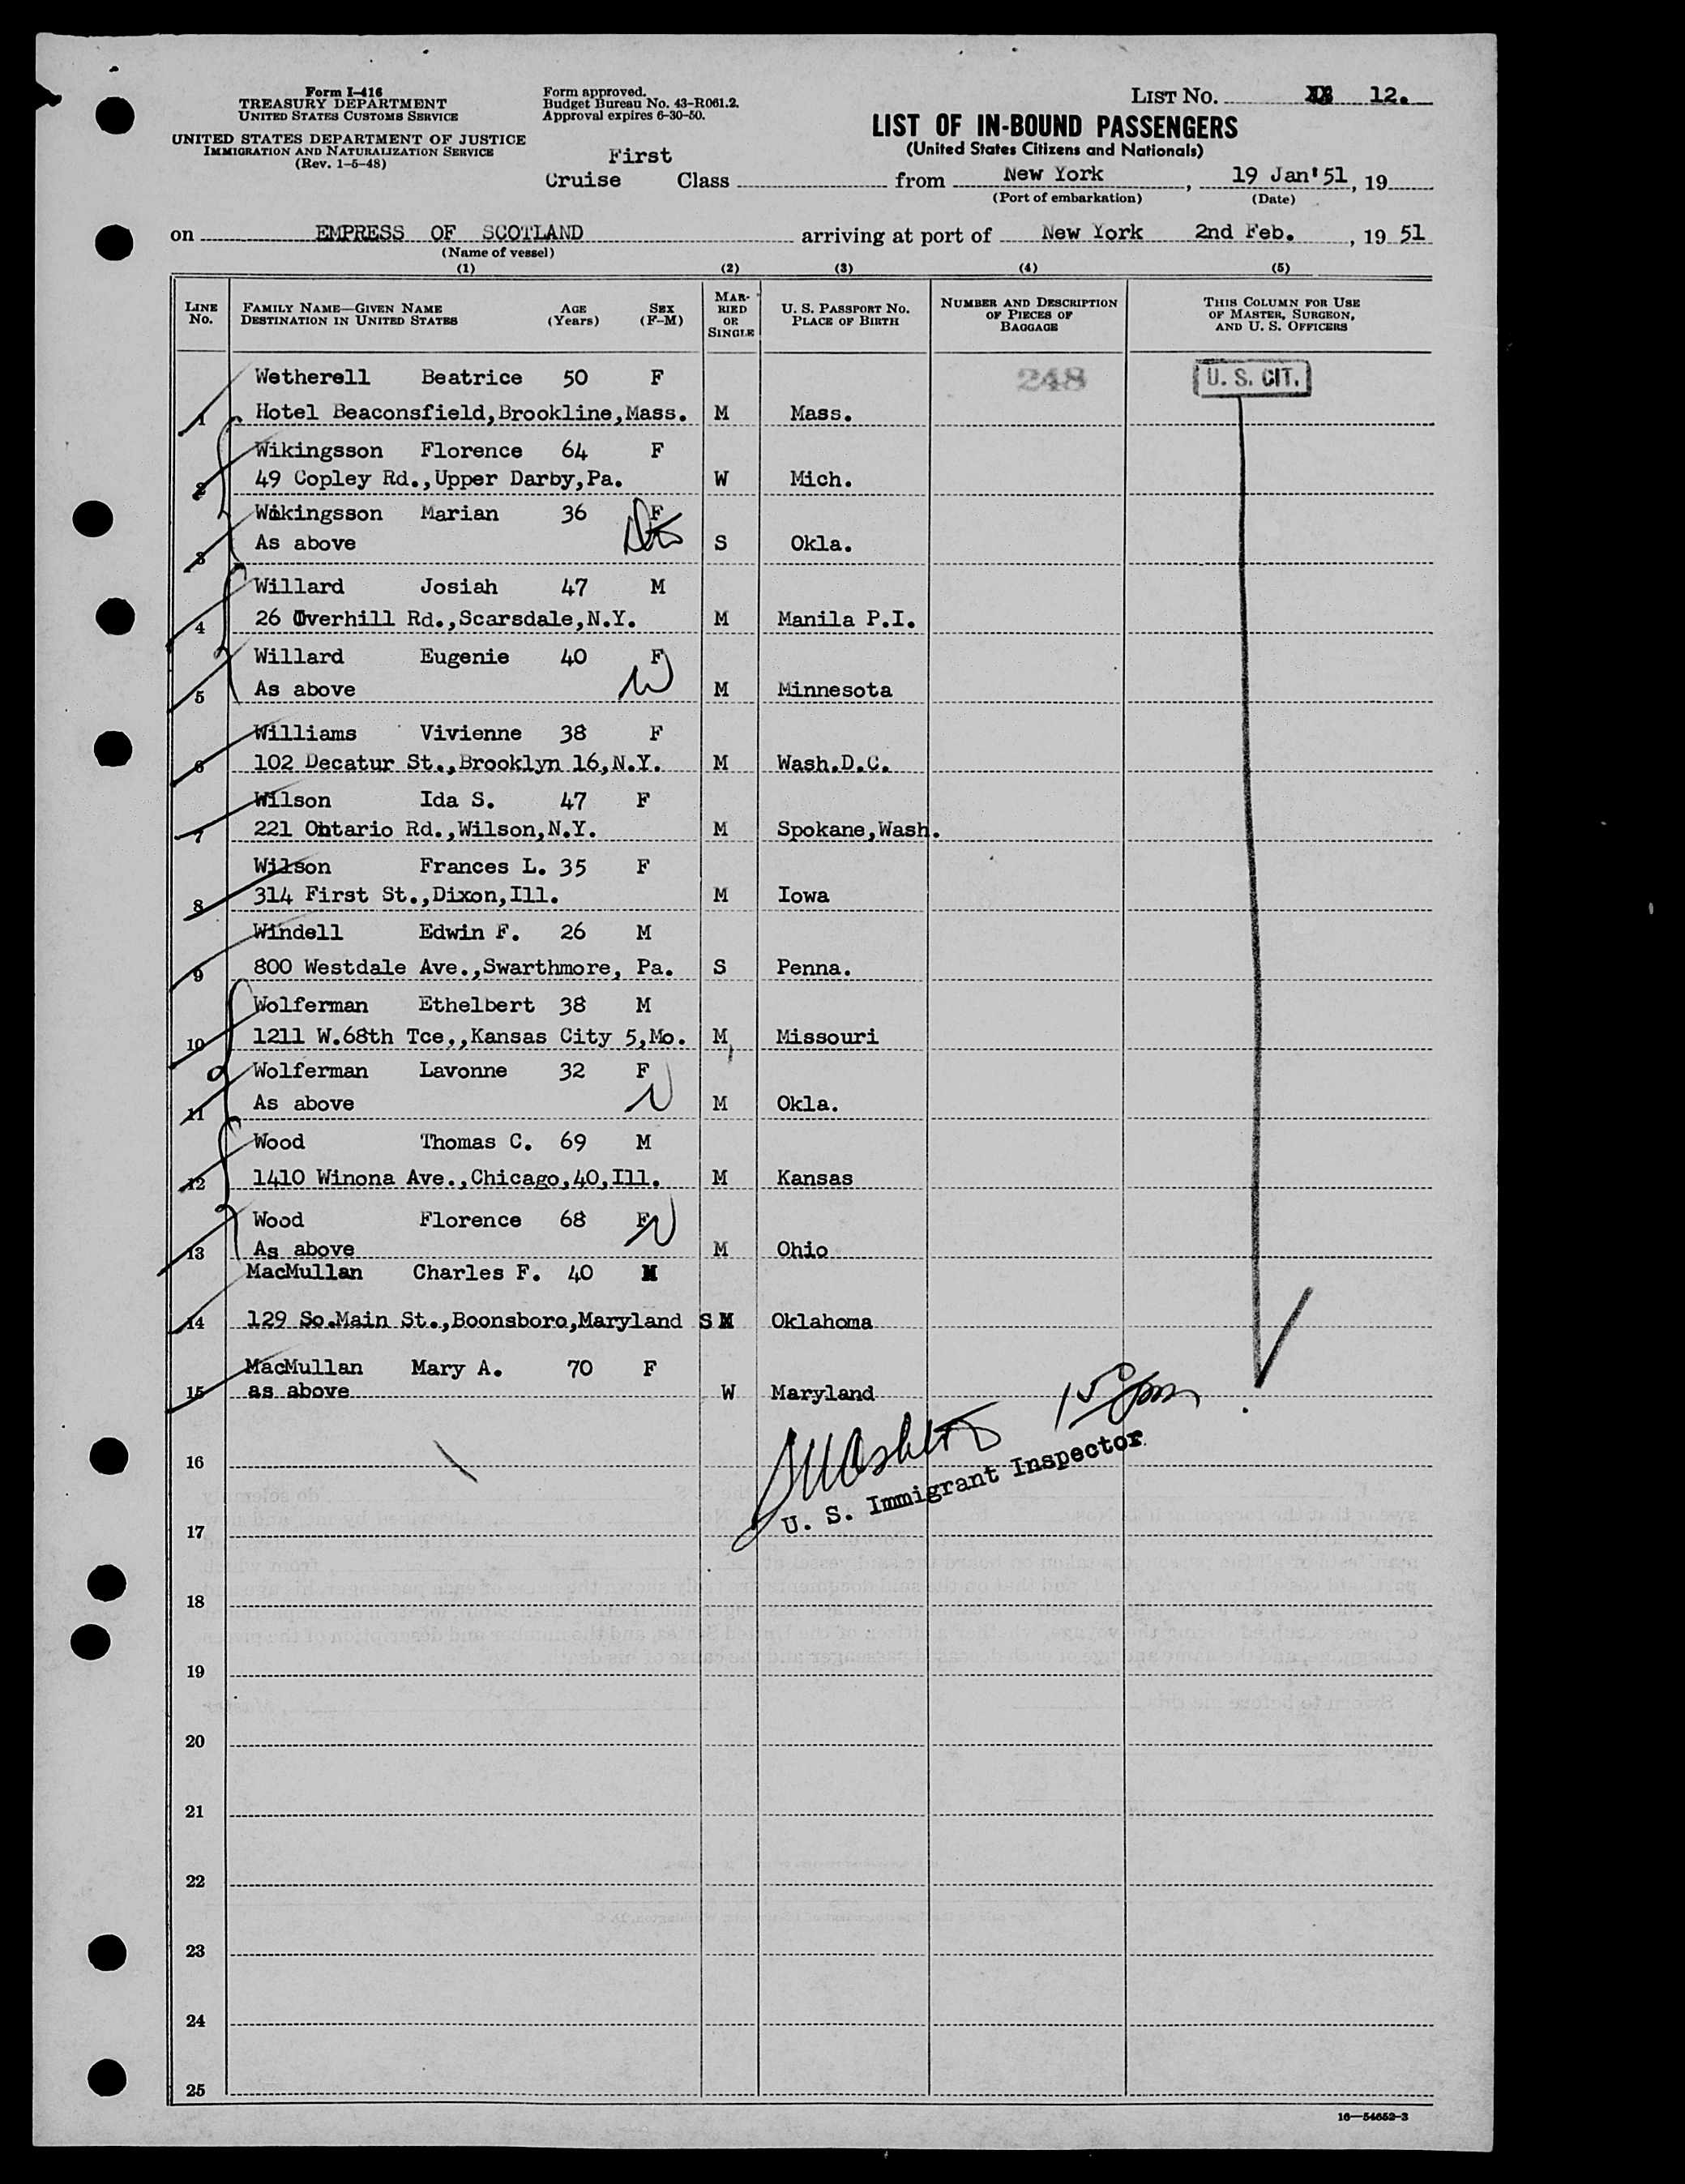 Form I-416
TREASURY DEPARTMENT
UNITED STATES CUSTOMS SERVICE
UNITED STATES DEPARTMENT OF JUSTICE
IMMIGRATION AND NATURALIZATION SERVICE
(Rev. 1-5-48)
Form approved.
Budget Bureau No. 43-R061.2.
Approval expires 6-30-50.
LIST No. 12.
LIST OF IN-BOUND PASSENGERS
(United States Citizens and Nationals)
First
Cruise Class from New York, 19 Jan'51, 19
(Port of embarkation) (Date)
on EMPRESS OF SCOTLAND arriving at port of New York 2nd Feb., 19 51
(Name of vessel)
(1) (2) (3) (4) (5)
LINE No.
FAMILY NAME—GIVEN NAME AGE SEX
DESTINATION IN UNITED STATES (Years) (F-M)
MAR-RIED OR SINGLE
U. S. PASSPORT No.
PLACE OF BIRTH
NUMBER AND DESCRIPTION
OF PIECES OF
BAGGAGE
THIS COLUMN FOR USE
OF MASTER, SURGEON,
AND U. S. OFFICERS
Wetherell Beatrice 50 F 248 U. S. CIT.
1 Hotel Beaconsfield,Brookline,Mass. M Mass.
Wikingsson Florence 64 F
2 49 Copley Rd.,Upper Darby,Pa. W Mich.
Wikingsson Marian 36 F
3 As above S Okla.
Willard Josiah 47 M
4 26 Overhill Rd.,Scarsdale,N.Y. M Manila P.I.
Willard Eugenie 40 F
5 As above M Minnesota
Williams Vivienne 38 F
6 102 Decatur St.,Brooklyn 16,N.Y. M Wash.D.C.
Wilson Ida S. 47 F
7 221 Ontario Rd.,Wilson,N.Y. M Spokane,Wash.
Wilson Frances L. 35 F
8 314 First St.,Dixon,Ill. M Iowa
Windell Edwin F. 26 M
9 800 Westdale Ave.,Swarthmore, Pa. S Penna.
Wolferman Ethelbert 38 M
10 1211 W.68th Tce,,Kansas City 5,Mo. M Missouri
Wolferman Lavonne 32 F
11 As above M Okla.
Wood Thomas C. 69 M
12 1410 Winona Ave.,Chicago,40,Ill. M Kansas
Wood Florence 68 F
13 As above M Ohio
MacMullan Charles F. 40 M
14 129 So.Main St.,Boonsboro,Maryland S Oklahoma
MacMullan Mary A. 70 F
15 as above W Maryland
U. S. Immigrant Inspector
16
17
18
19
20
21
22
23
24
25
16—54652-3